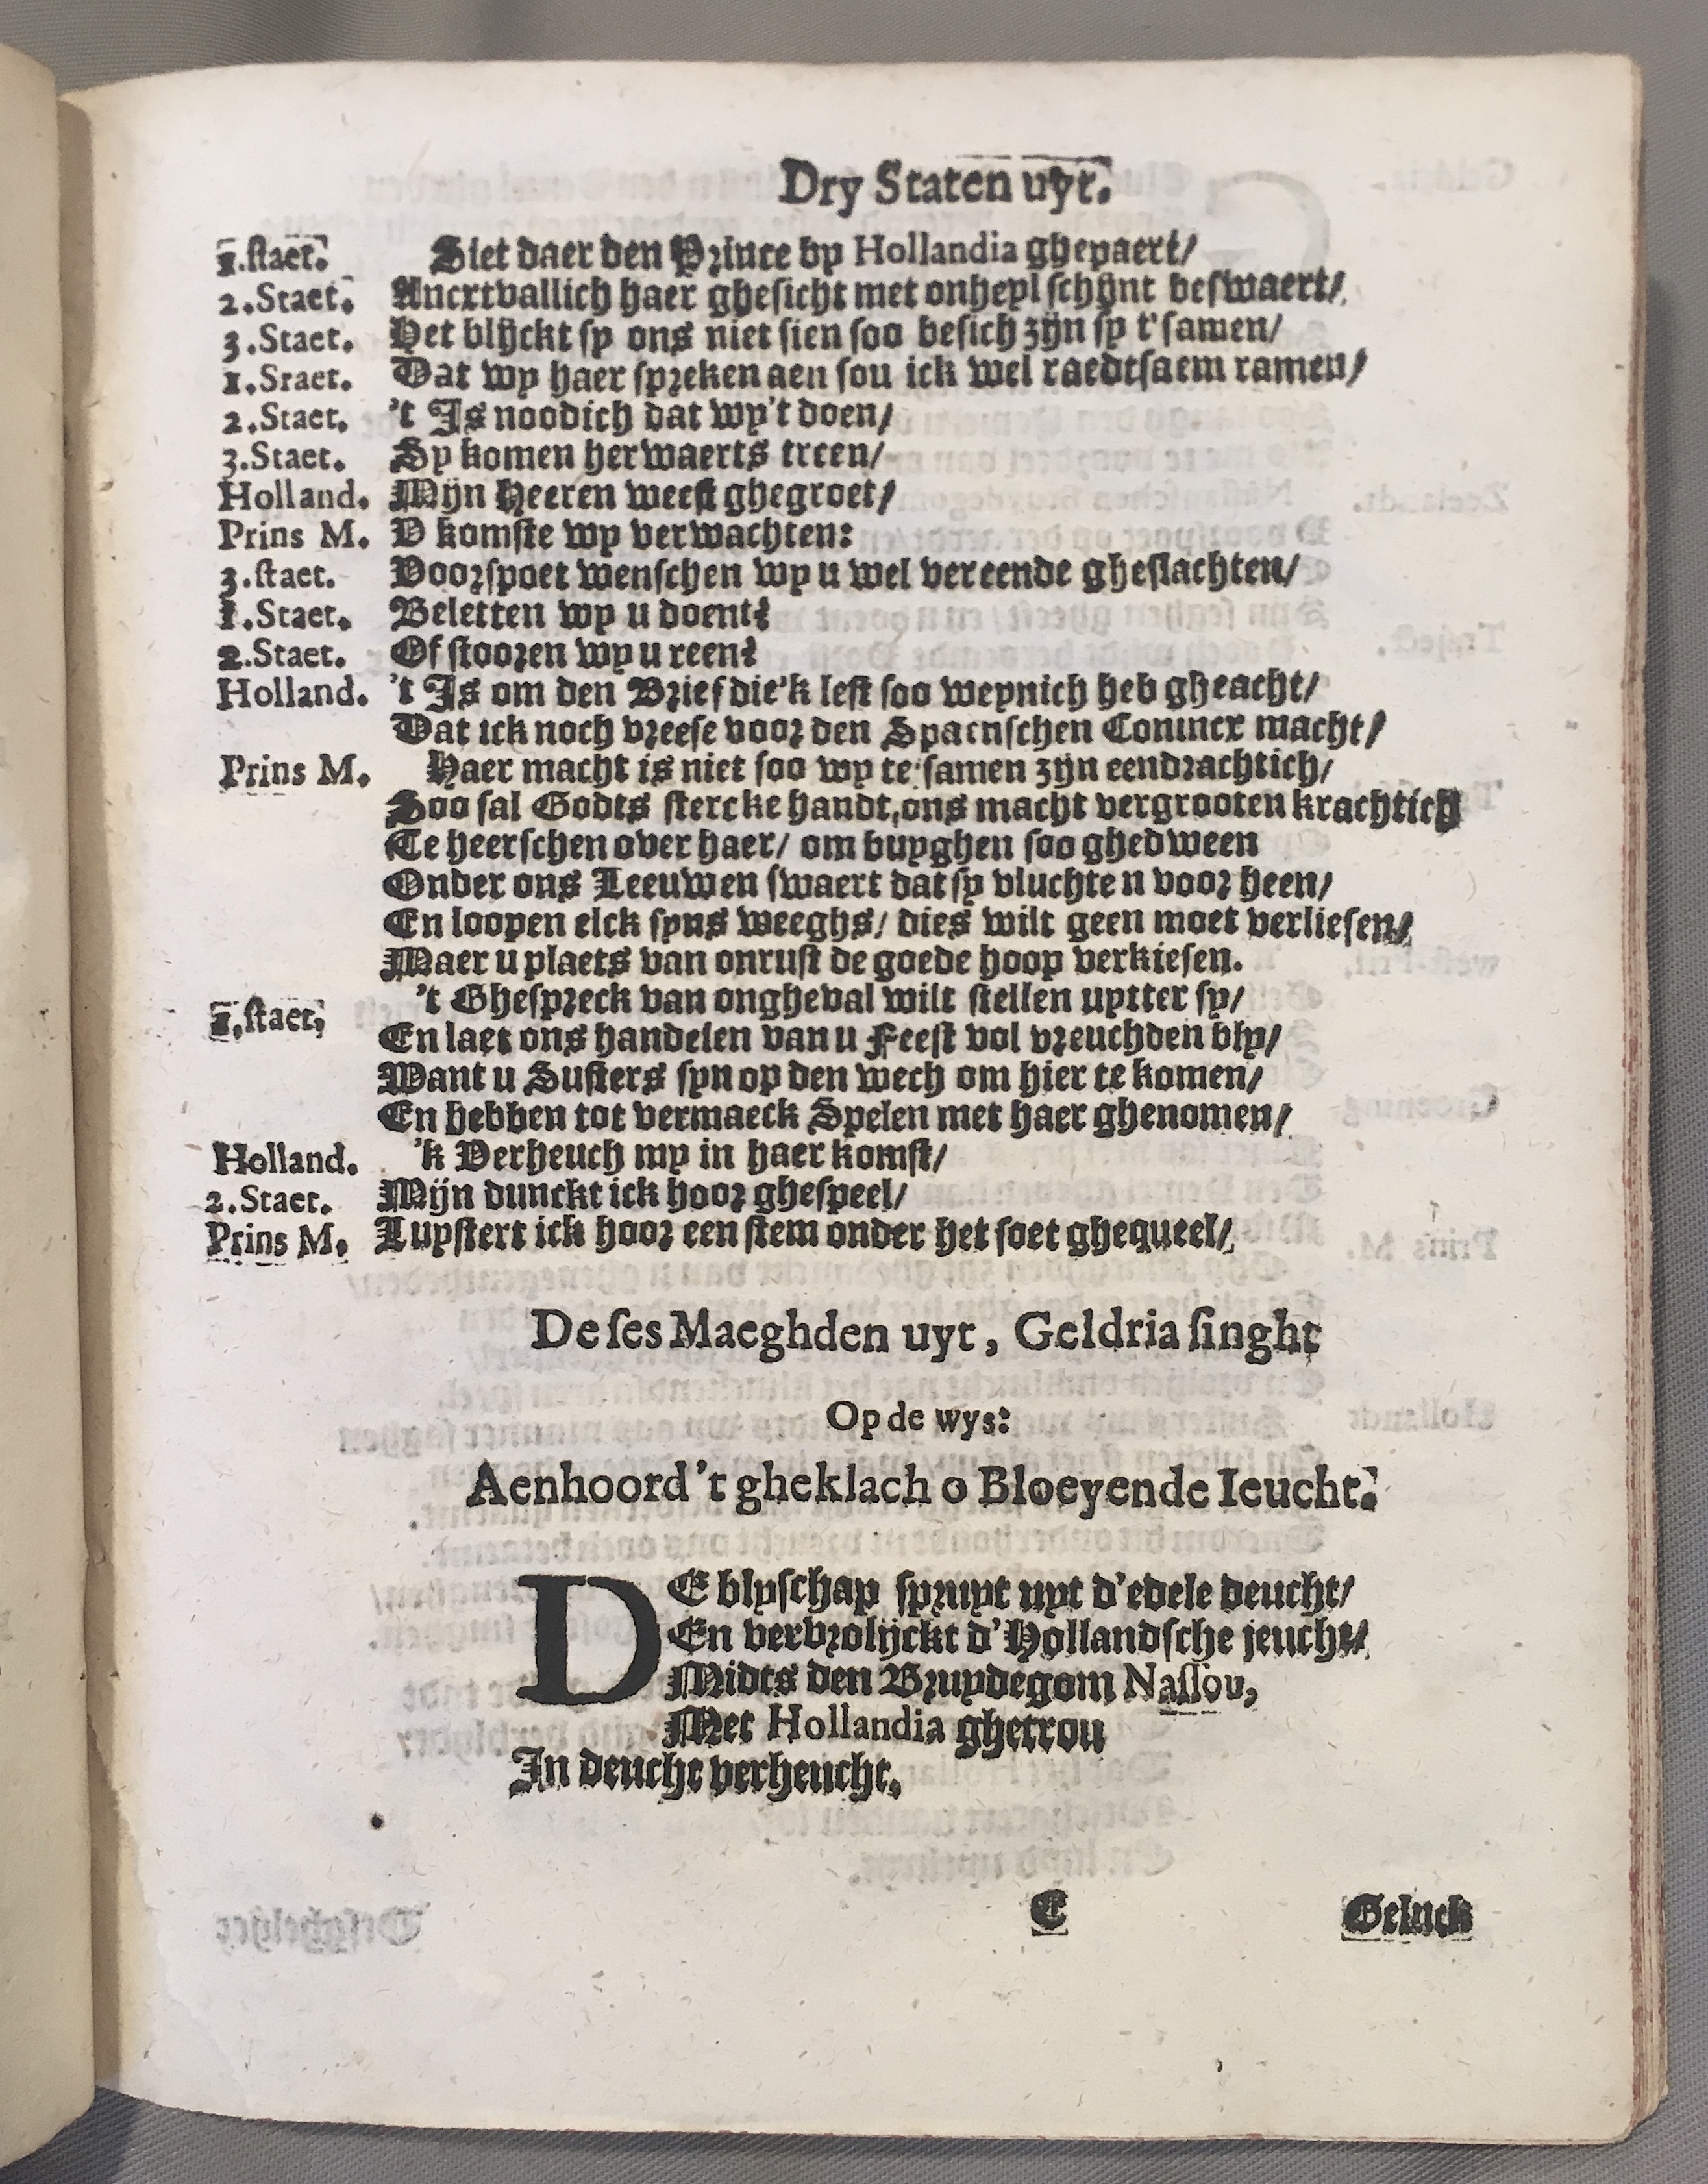 Dry Staten uyt.
1.staet. Siet daer den Prince by Hollandia ghepaert/
2.Staet. Ancxtvallich haer ghesicht met onheyl schijnt beswaert/
3.Staet. Het blijckt sy ons niet sien soo besich zijn sy t'samen/
1.Sraet. Dat wy haer spreken aen sou ick wel raedtsaem ramen/
2.Staet. 't Is noodich dat wy't doen/
3.Staet. Sy komen herwaerts treen/
Holland. Mijn Heeren weest ghegroet/
Prins M. V komste wy verwachten:
3.staet. Voorspoet wenschen wy u wel vereende gheslachten/
1.Staet. Beletten wy u doent?
2.Staet. Of stooren wy u reen?
Holland. 't Is om den Brief die'k lest soo weynich heb gheacht/
Dat ick noch vreese voor den Spaenschen Conincx macht/
Prins M. Haer macht is niet soo wy te samen zijn eendrachtich/
Soo sal Godts stercke handt, ons macht vergrooten krachtich
Te heerschen over haer/ om buyghen soo ghedween
Onder ons Leeuwen swaert dat sy vluchten voor heen/
En loopen elck syns weeghs/ dies wilt geen moet verliesen/
Maer u plaets van onrust de goede hoop verkiesen.
1.staet. 't Ghespreck van ongheval wilt stellen uytter sy/
En laet ons handelen van u Feest vol vreuchden bly/
Want u Susters syn op den wech om hier te komen/
En hebben tot vermaeck Spelen met haer ghenomen/
Holland. 'k Verheuch my in haer komst/
2.Staet. Mijn dunckt ick hoor ghespeel/
Prins M. Luystert ick hoor een stem onder het soet ghequeel/
De ses Maeghden uyt, Geldria singht
Op de wys:
Aenhoord 't gheklach o Bloeyende Ieucht.
DE blyschap spruyt uyt d'edele deucht/
En vervrolijckt d'Hollandsche jeucht/
Midts den Bruydegom Nassou,
Met Hollandia ghetrou
In deucht verheucht.
C
Geluck